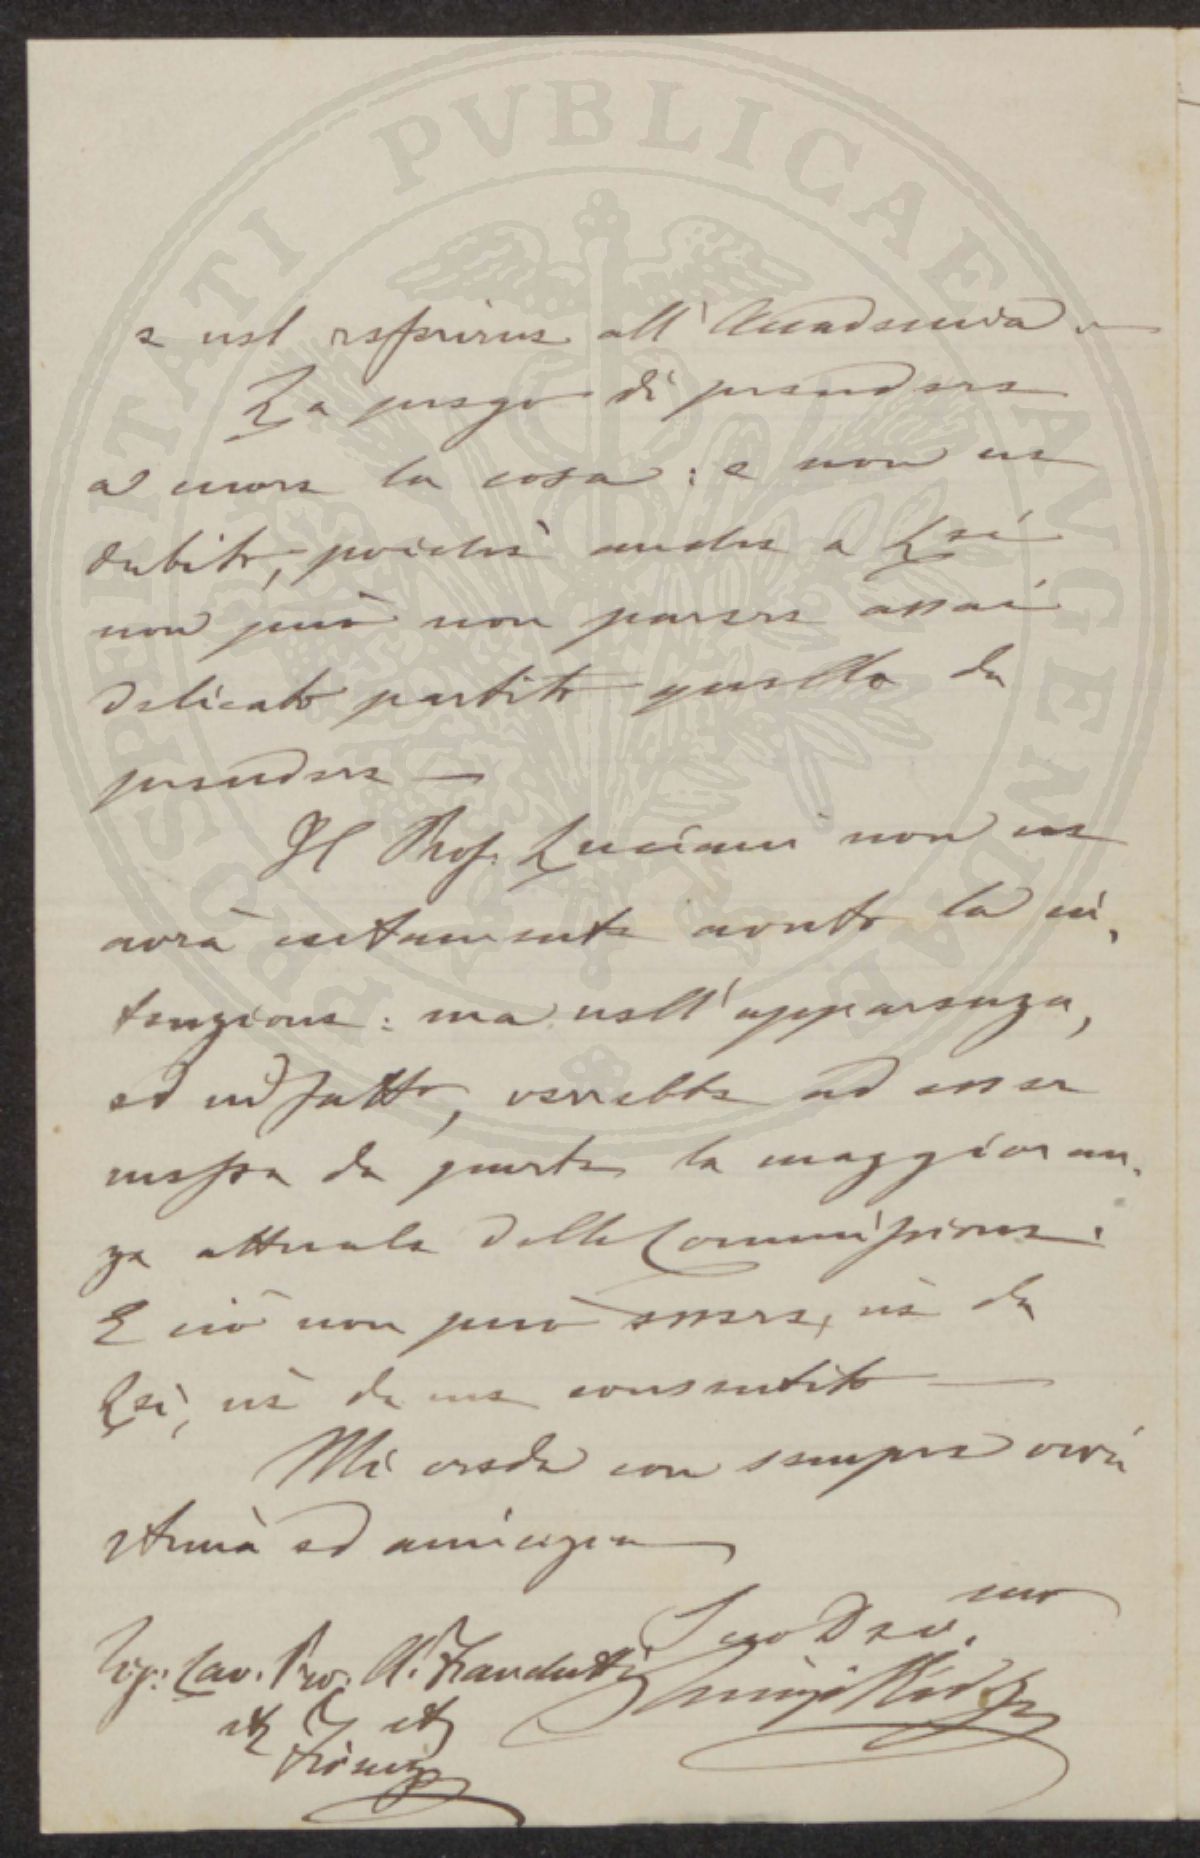 PROSPERITATI PVBLICAE AVGENDAE
e nel riferirne all'Accademia. —
La prego di prendere
a cuore la cosa: e non ne
dubito, poichè anche a Lei
non può non parere assai
delicato partito quello da
prendere —
Il Prof. Luciani non ne
avrà certamente avuto la in,
tenzione: ma nell'apparenza,
ed in fatto, verrebbe ad esser
messa da parte la maggioran,
za attuale della Commissione.
E ciò non può essere, nè da
Lei, nè da me consentito —
Mi creda con sempre viva
stima ed amicizia
Suo Dev.mo
Sig: Cav. Pro. A.
Luigi
Firenze